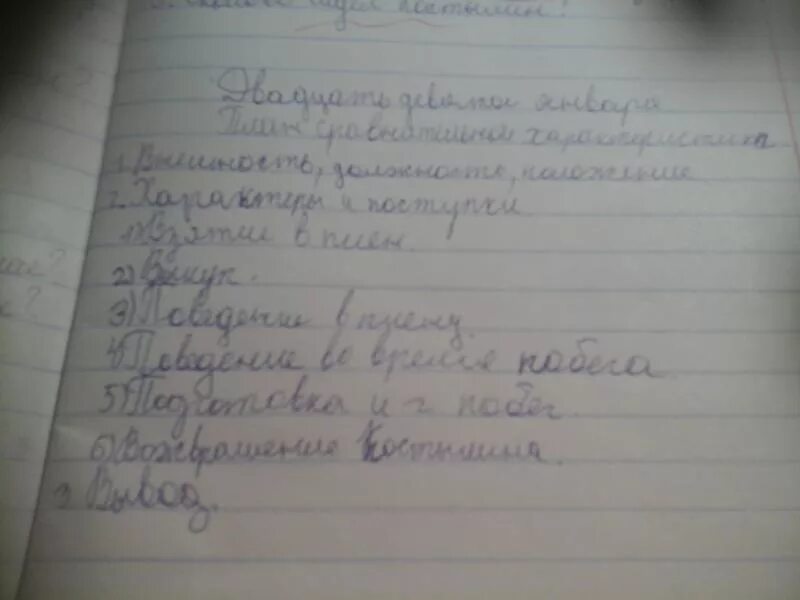 Костылин?
Двадцать девятое января
План сравнительной характеристики
1. Внешность, должность, положение
2. Характеры и поступки
1) Взятие в плен
2) Выкуп.
3) Поведение в плену
4) Поведение во время побега
5) Подготовка и 2 побег.
6) Возвращение Костылина.
3 Вывод.